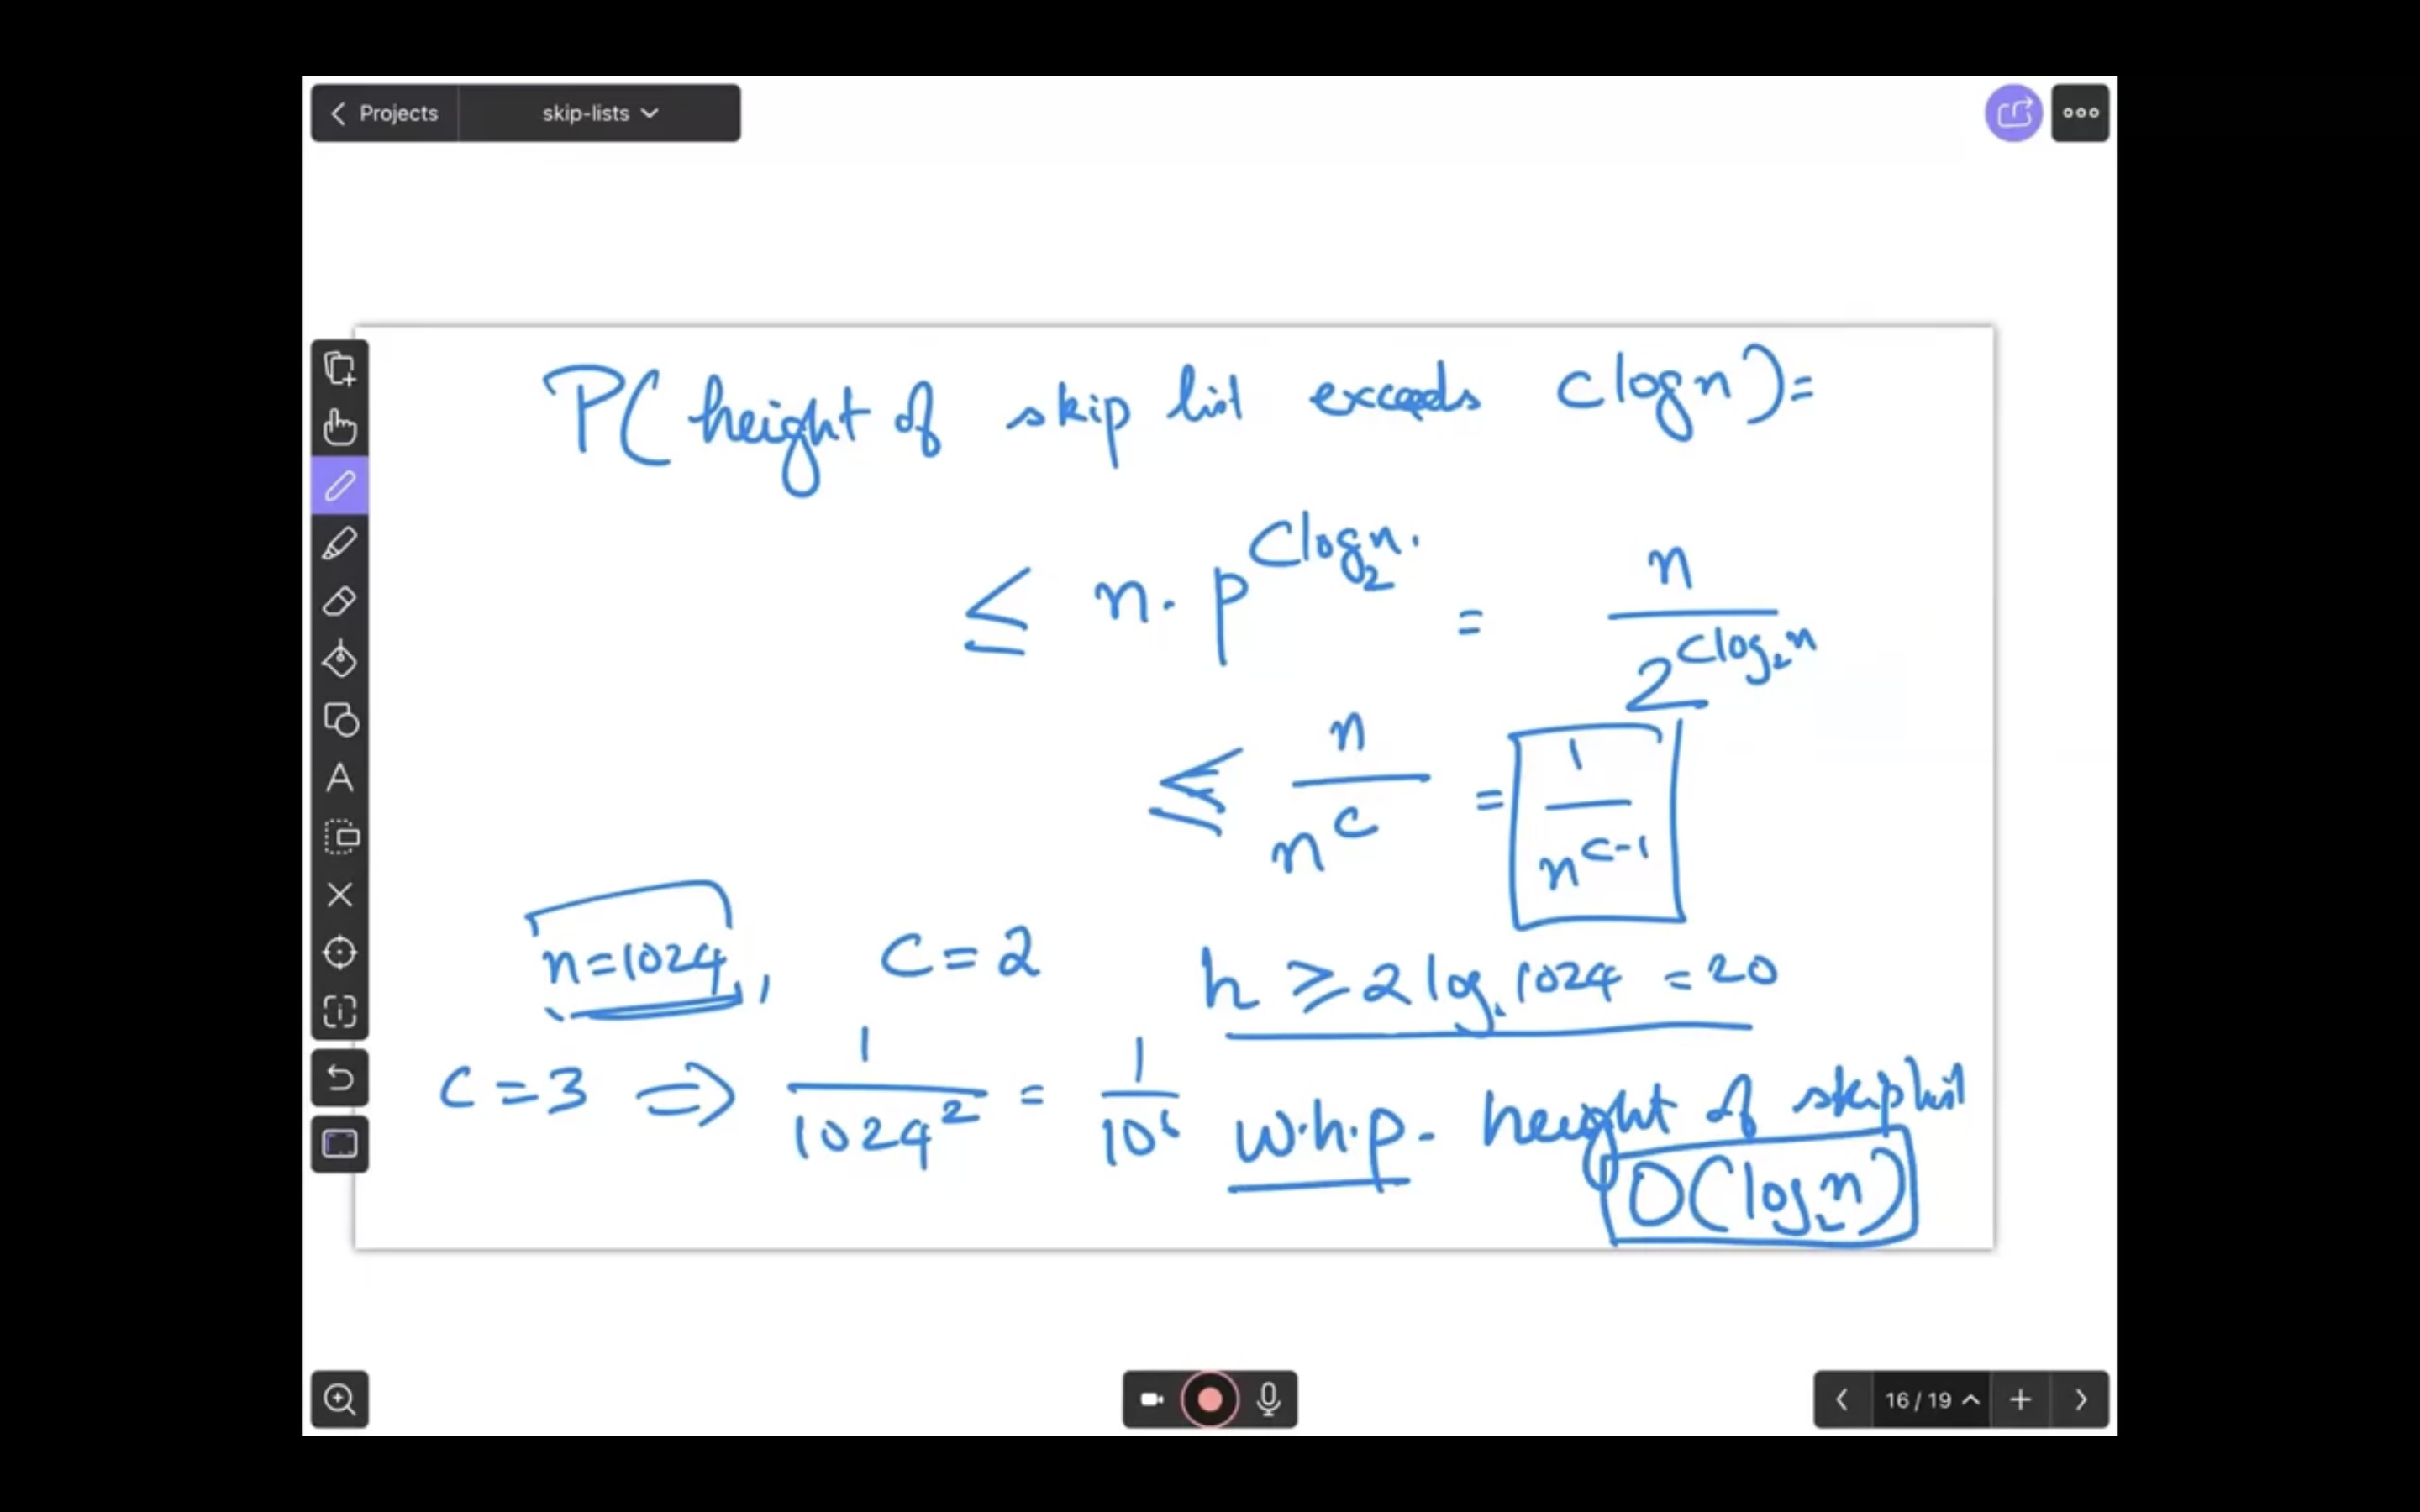 Projects
skip-lists
P(height of skip list exceeds C log n) =
≤ n · p^{C log₂ n} = n / 2^{C log₂ n}
≤ n / n^C = 1 / n^{C-1}
n=1024, C=2 h ≥ 2 log₂ 1024 = 20
C=3 ⇒ 1 / 1024² = 1 / 10⁶ w.h.p. height of skip list
O(log₂ n)
16 / 19